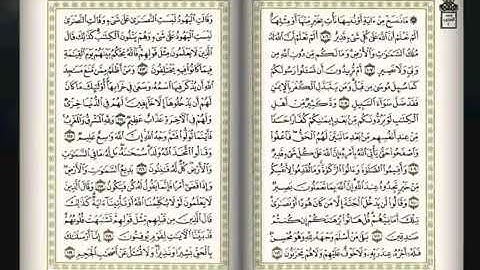 ۞ مَا نَنسَخْ مِنْ ءَايَةٍ أَوْ نُنسِهَا نَأْتِ بِخَيْرٍ مِّنْهَآ أَوْ مِثْلِهَآ
أَلَمْ تَعْلَمْ أَنَّ ٱللَّهَ عَلَىٰ كُلِّ شَىْءٍ قَدِيرٌ ١٠٦ أَلَمْ تَعْلَمْ أَنَّ ٱللَّهَ
لَهُۥ مُلْكُ ٱلسَّمَٰوَٰتِ وَٱلْأَرْضِ وَمَا لَكُم مِّن دُونِ ٱللَّهِ مِن
وَلِىٍّ وَلَا نَصِيرٍ ١٠٧ أَمْ تُرِيدُونَ أَن تَسْـَٔلُوا۟ رَسُولَكُمْ
كَمَا سُئِلَ مُوسَىٰ مِن قَبْلُ وَمَن يَتَبَدَّلِ ٱلْكُفْرَ بِٱلْإِيمَٰنِ
فَقَدْ ضَلَّ سَوَآءَ ٱلسَّبِيلِ ١٠٨ وَدَّ كَثِيرٌ مِّنْ أَهْلِ
ٱلْكِتَٰبِ لَوْ يَرُدُّونَكُم مِّنۢ بَعْدِ إِيمَٰنِكُمْ كُفَّارًا حَسَدًا
مِّنْ عِندِ أَنفُسِهِم مِّنۢ بَعْدِ مَا تَبَيَّنَ لَهُمُ ٱلْحَقُّ فَٱعْفُوا۟
وَٱصْفَحُوا۟ حَتَّىٰ يَأْتِىَ ٱللَّهُ بِأَمْرِهِۦٓ إِنَّ ٱللَّهَ عَلَىٰ كُلِّ شَىْءٍ قَدِيرٌ
١٠٩ وَأَقِيمُوا۟ ٱلصَّلَوٰةَ وَءَاتُوا۟ ٱلزَّكَوٰةَ وَمَا تُقَدِّمُوا۟ لِأَنفُسِكُم
مِّنْ خَيْرٍ تَجِدُوهُ عِندَ ٱللَّهِ إِنَّ ٱللَّهَ بِمَا تَعْمَلُونَ بَصِيرٌ
١١٠ وَقَالُوا۟ لَن يَدْخُلَ ٱلْجَنَّةَ إِلَّا مَن كَانَ هُودًا أَوْ نَصَٰرَىٰ
تِلْكَ أَمَانِيُّهُمْ قُلْ هَاتُوا۟ بُرْهَٰنَكُمْ إِن كُنتُمْ
صَٰدِقِينَ ١١١ بَلَىٰ مَنْ أَسْلَمَ وَجْهَهُۥ لِلَّهِ وَهُوَ مُحْسِنٌ
فَلَهُۥٓ أَجْرُهُۥ عِندَ رَبِّهِۦ وَلَا خَوْفٌ عَلَيْهِمْ وَلَا هُمْ يَحْزَنُونَ ١١٢
وَقَالَتِ ٱلْيَهُودُ لَيْسَتِ ٱلنَّصَٰرَىٰ عَلَىٰ شَىْءٍ وَقَالَتِ ٱلنَّصَٰرَىٰ
لَيْسَتِ ٱلْيَهُودُ عَلَىٰ شَىْءٍ وَهُمْ يَتْلُونَ ٱلْكِتَٰبَ كَذَٰلِكَ قَالَ ٱلَّذِينَ
لَا يَعْلَمُونَ مِثْلَ قَوْلِهِمْ فَٱللَّهُ يَحْكُمُ بَيْنَهُمْ يَوْمَ ٱلْقِيَٰمَةِ
فِيمَا كَانُوا۟ فِيهِ يَخْتَلِفُونَ ١١٣ وَمَنْ أَظْلَمُ مِمَّن مَّنَعَ مَسَٰجِدَ
ٱللَّهِ أَن يُذْكَرَ فِيهَا ٱسْمُهُۥ وَسَعَىٰ فِى خَرَابِهَآ أُو۟لَٰٓئِكَ مَا كَانَ
لَهُمْ أَن يَدْخُلُوهَآ إِلَّا خَآئِفِينَ لَهُمْ فِى ٱلدُّنْيَا خِزْىٌ
وَلَهُمْ فِى ٱلْءَاخِرَةِ عَذَابٌ عَظِيمٌ ١١٤ وَلِلَّهِ ٱلْمَشْرِقُ وَٱلْمَغْرِبُ
فَأَيْنَمَا تُوَلُّوا۟ فَثَمَّ وَجْهُ ٱللَّهِ إِنَّ ٱللَّهَ وَٰسِعٌ عَلِيمٌ ١١٥
وَقَالُوا۟ ٱتَّخَذَ ٱللَّهُ وَلَدًا سُبْحَٰنَهُۥ بَل لَّهُۥ مَا فِى ٱلسَّمَٰوَٰتِ
وَٱلْأَرْضِ كُلٌّ لَّهُۥ قَٰنِتُونَ ١١٦ بَدِيعُ ٱلسَّمَٰوَٰتِ وَٱلْأَرْضِ
وَإِذَا قَضَىٰٓ أَمْرًا فَإِنَّمَا يَقُولُ لَهُۥ كُن فَيَكُونُ ١١٧ وَقَالَ ٱلَّذِينَ
لَا يَعْلَمُونَ لَوْلَا يُكَلِّمُنَا ٱللَّهُ أَوْ تَأْتِينَآ ءَايَةٌ كَذَٰلِكَ
قَالَ ٱلَّذِينَ مِن قَبْلِهِم مِّثْلَ قَوْلِهِمْ تَشَٰبَهَتْ قُلُوبُهُمْ
قَدْ بَيَّنَّا ٱلْءَايَٰتِ لِقَوْمٍ يُوقِنُونَ ١١٨ إِنَّآ أَرْسَلْنَٰكَ
بِٱلْحَقِّ بَشِيرًا وَنَذِيرًا وَلَا تُسْـَٔلُ عَنْ أَصْحَٰبِ ٱلْجَحِيمِ ١١٩